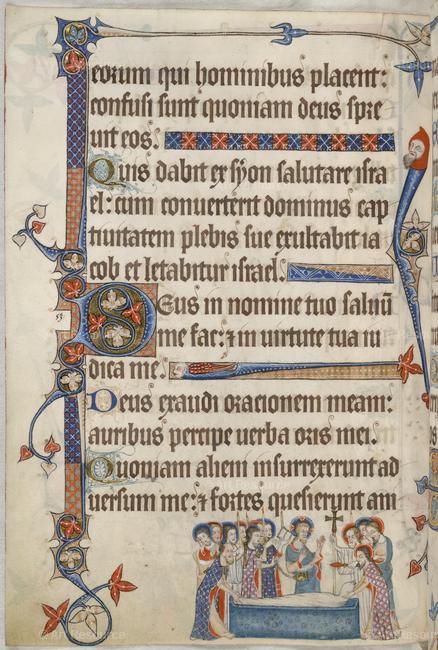 eorum qui hominibus placent:
confusi sunt quoniam deus spre
uit eos.
Quis dabit ex syon salutare isra
el: cum conuerterit dominus cap
tiuitatem plebis sue exultabit ia
cob et letabitur israel.
53.
Deus in nomine tuo saluū
me fac: ⁊ in uirtute tua iu
dica me.
Deus exaudi oracionem meam:
auribus percipe uerba oris mei.
Quoniam alieni insurrexerunt ad
uersum me: ⁊ fortes quesierunt am